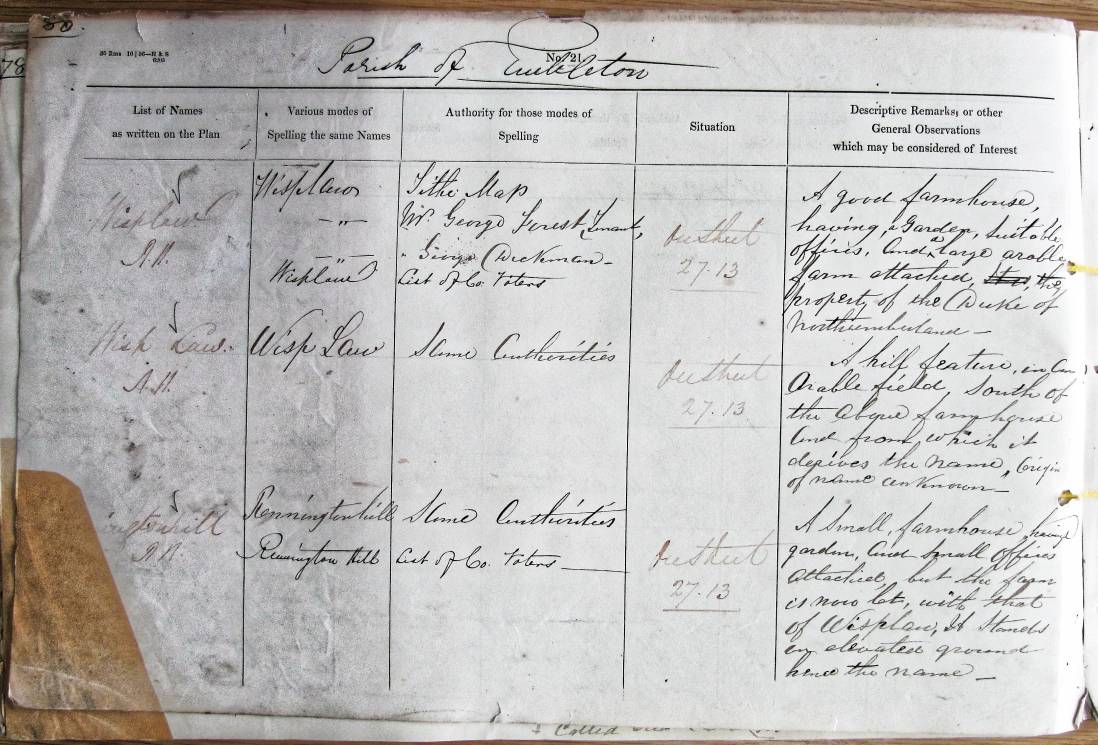 30.
78
35 Rms 10|56—H & S
No. 21.
Parish of Embleton
List of Names
as written on the Plan
Various modes of
Spelling the same Names
Authority for those modes of
Spelling
Situation
Descriptive Remarks, or other
General Observations
which may be considered of Interest
Wisplaw
R.H.
Wisplaw
— " —
— " —
Wisplaw
Tithe Map
Mr. George Forest, Tenant,
" George Dickman —
List of Co. Voters
On Sheet
27.13
A good farmhouse,
having, a Garden, Suitable
offices, and a large arable
farm attached, the
property of the Duke of
Northumberland —
Wisp Law.
R.H.
Wisp Law
Same Authorities
On Sheet
27.13
A hill feature, in an
Arable field, South of
the above farmhouse
and from which it
derives the name, Origin
of name unknown —
R.H.
Rennington hill
Rennington Hill
Same Authorities
List of Co. Voters
On Sheet
27.13
A Small, farmhouse, having
garden, and small offices
attached, but the farm
is now let, with that
of Wisplaw, It Stands
on elevated ground
hence the name —
Called